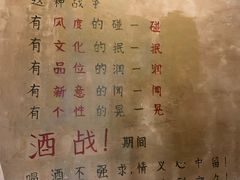 这种战争
有风度的碰一碰
有文化的抿一抿
有品位的润一润
有新意的闻一闻
有个性的晃一晃
酒战！期间
喝酒不强求，情义心中留！